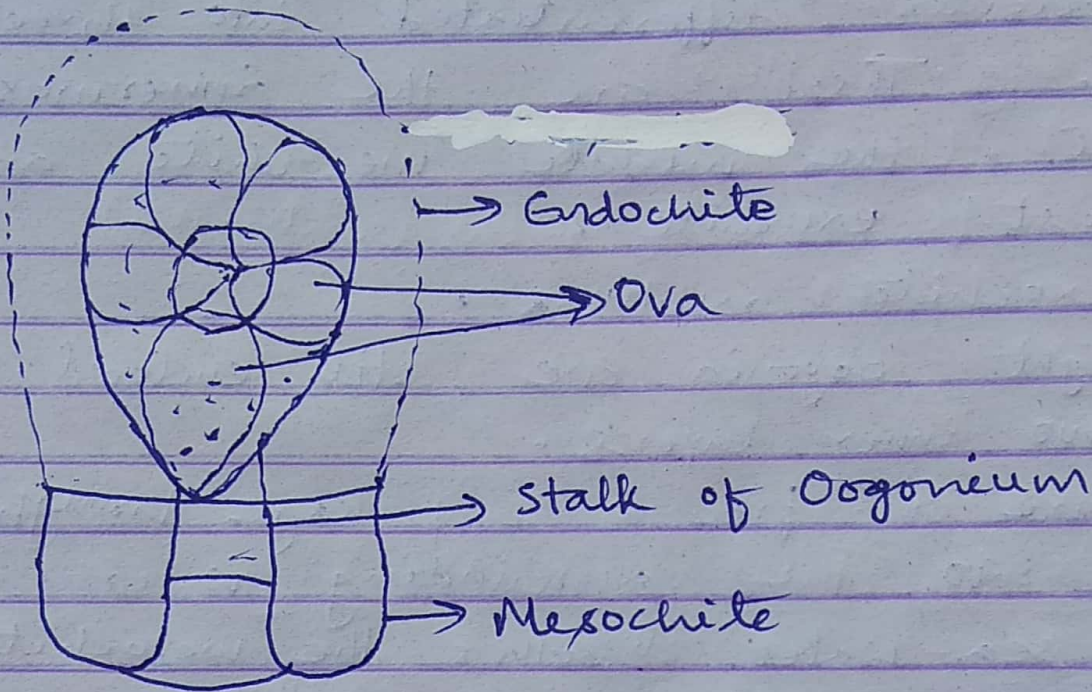 Endochite
Ova
Stalk of Oogonium
Mesochite